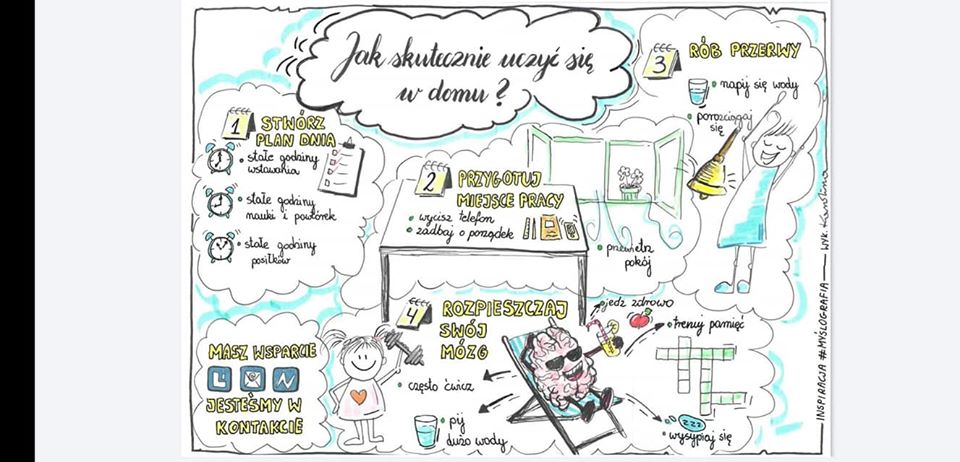 Jak skutecznie uczyć się
w domu?
1 STWÓRZ
PLAN DNIA
stałe godziny
wstawania
stałe godziny
nauki i powtórek
stałe godziny
posiłków
2 PRZYGOTUJ
MIEJSCE PRACY
wycisz telefon
zadbaj o porządek
przewietrz
pokój
3 RÓB PRZERWY
napij się wody
porozciągaj
się
4 ROZPIESZCZAJ
SWÓJ
MÓZG
jedz zdrowo
trenuj pamięć
często ćwicz
pij
dużo wody
wysypiaj się
MASZ WSPARCIE
JESTEŚMY W
KONTAKCIE
INSPIRACJA #MYŚLOGRAFIA